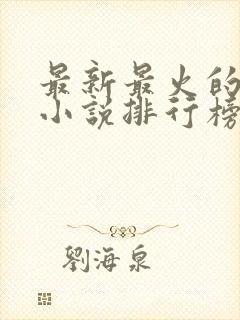 最新最火的
小說排行榜
劉海泉